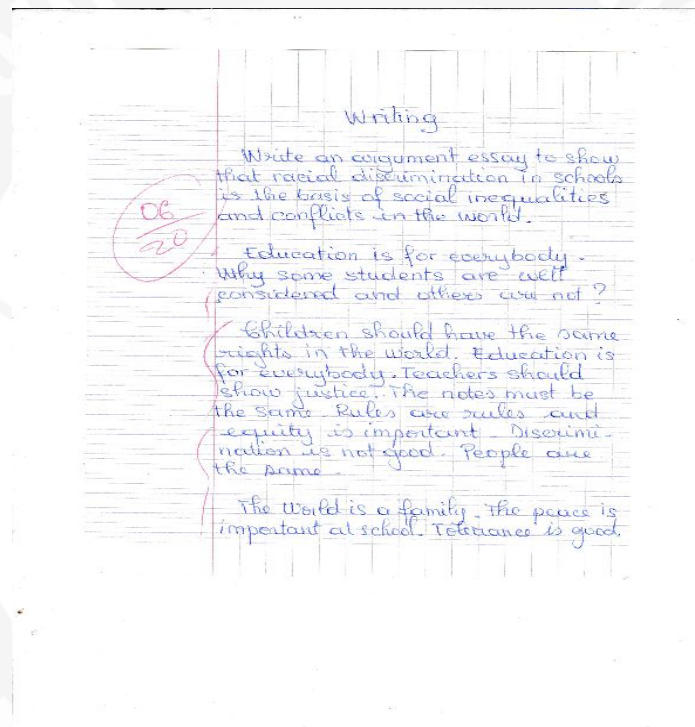 Writing
Write an argument essay to show
that racial discrimination in schools
is the basis of social inequalities
and conflicts in the world.
06
20
Education is for everybody.
Why some students are well
considered and others are not ?
Children should have the same
rights in the world. Education is
for everybody. Teachers should
show justice. The notes must be
the same. Rules are rules and
equity is important. Discrimi-
nation is not good. People are
the same.
The World is a family. The peace is
important at school. Tolerance is good.